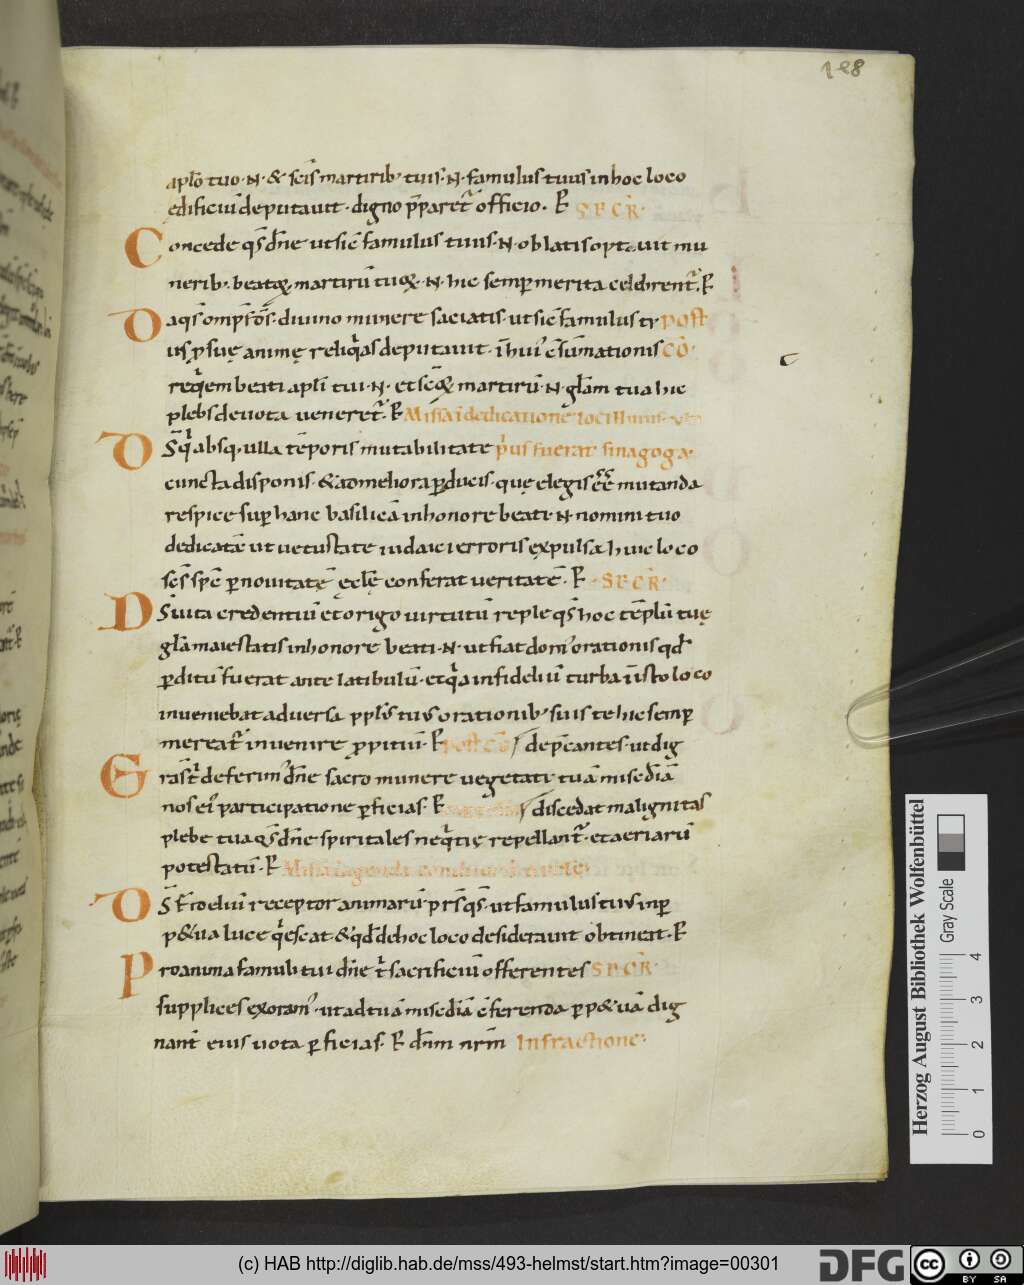 128
aplo tuo · N · & scis martirib; tuis · N · famulus tuus in hoc loco
edificiū deputauit · digno pparet officio · P SECR·
Concede qs dne ut sic famulus tuus · N · oblatis optauit mu
nerib; beatoꝝ martirū tuoꝝ · N · hic semp merita celebrent · P
Da qs omps ds · diuino munere saciatis · ut sic famulus tu POST
us, p suę animę reliqas deputauit · in hui csūmationis CŌ·
reqem beati apli tui · N · et scoꝝ martirū · N · glam tua hic
plebs deuota ueneret · P Missa ī dedicatione loci
Ds q absq; ulla tēporis mutabilitate prius fuerat sinagoga·
cuncta disponis · & ad meliora pducis · quę elegis ēē mutanda
respice sup hanc basilicā in honore beati · N · nomini tuo
dedicatā ut uetustate iudaici erroris expulsa huic loco
scs sps p nouitatē ęclę conferat ueritatē · P · SECR·
Ds uita credentiū et origo uirtutū reple qs hoc tēplū tuę
glā maiestatis in honore beati · N · ut fiat dom; orationis qd
pditū fuerat ante latibulū · et qa infideliū turba ī isto loco
inueniebat aduersa ppls tuus orationib; suis te hic semp
mereat inuenire ppitiū · P post cō / depcantes · ut dig
Gras t deferim; dne sacro munere uegetati · tuā misediā
nos ei; participatione pficias · P / discedat malignitas
plebe tua qs dne spiritales neqtię repellant · et aeriarū
potestatū · P Missa
Ds t coeluī receptor animarū prs qs · ut famulus tuus in p
p&ua luce qescat · & qd de hoc loco desiderauit obtineat · P
Pro anima famuli tui dne t sacrificiū offerentes SECR·
supplices exoram; · ut ad tuā misediā cferenda p p&uā dig
nant eius uota pficias · P dnm nrm Infractione·
Herzog August Bibliothek Wolfenbüttel
Gray Scale
0 1 2 3 4
(c) HAB http://diglib.hab.de/mss/493-helmst/start.htm?image=00301
DFG
cc BY SA